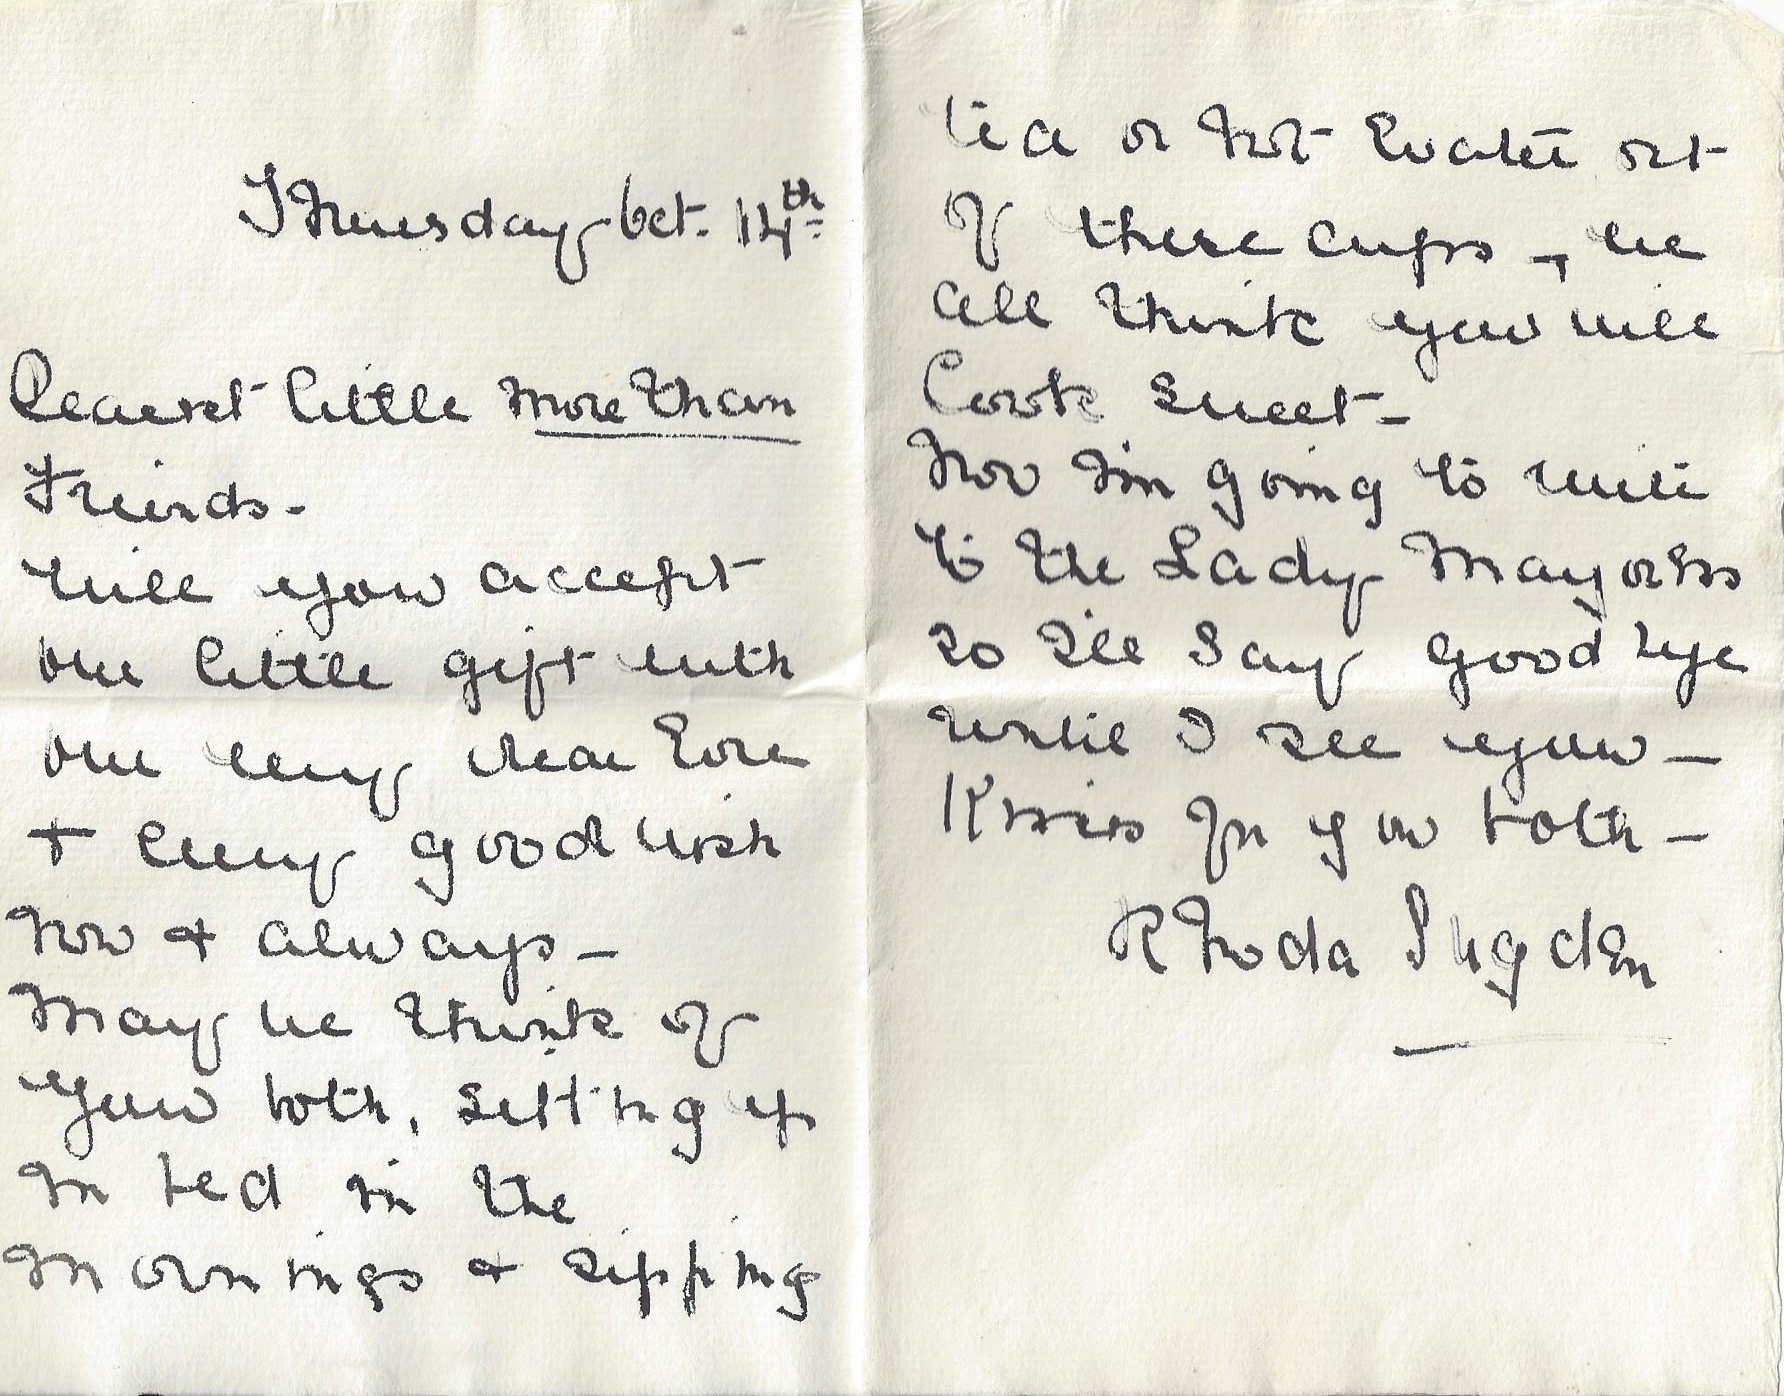 Thursday Oct. 14th
Dearest little more than
Friends -
Will you accept
our little gift with
our very dear love
+ every good wish
now + always -
May we think of
you both, sitting up
in bed in the
mornings + sipping
tea or hot water out
of these cups, we
all think you will
look sweet -
Now I'm going to write
to the Lady Mayoress
so I'll say good bye
until I see you -
Kisses for you both -
Rhoda Sugden